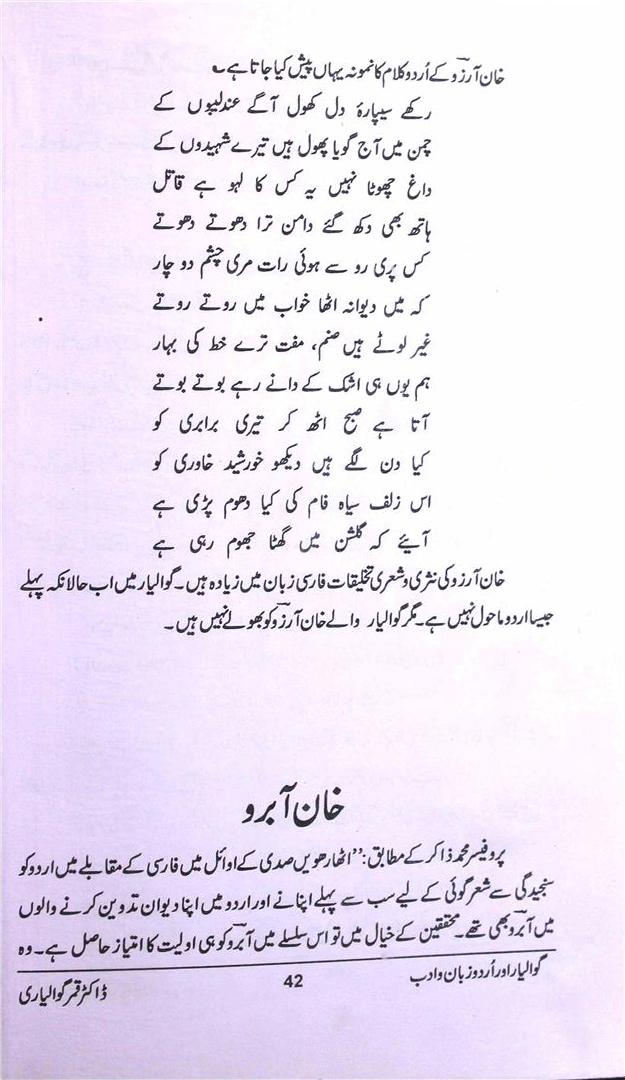 خان آرزو کے اُردو کلام کا نمونہ یہاں پیش کیا جاتا ہے ؎
رکھے سیپارۂ دل کھول آگے عندلیبوں کے
چمن میں آج گویا پھول ہیں تیرے شہیدوں کے
داغ چھوٹا نہیں یہ کس کا لہو ہے قاتل
ہاتھ بھی دکھ گئے دامن ترا دھوتے دھوتے
کس پری رو سے ہوئی رات مری چشم دو چار
کہ میں دیوانہ اٹھا خواب میں روتے روتے
غیر لوٹے ہیں صنم، مفت ترے خط کی بہار
ہم یوں ہی اشک کے دانے رہے بوتے بوتے
آتا ہے صبح اٹھ کر تیری برابری کو
کیا دن لگے ہیں دیکھو خورشید خاوری کو
اس زلف سیاہ فام کی کیا دھوم پڑی ہے
آئیے کہ گلشن میں گھٹا جھوم رہی ہے
خان آرزو کی نثری و شعری تخلیقات فارسی زبان میں زیادہ ہیں۔ گوالیار میں اب حالانکہ پہلے
جیسا اردو ماحول نہیں ہے۔ مگر گوالیار والے خان آرزو کو بھولے نہیں ہیں۔
خان آبرو
پروفیسر محمد ذاکر کے مطابق: ”اٹھارھویں صدی کے اوائل میں فارسی کے مقابلے میں اردو کو
سنجیدگی سے شعر گوئی کے لیے سب سے پہلے اپنانے اور اردو میں اپنا دیوان تدوین کرنے والوں
میں آبرو بھی تھے۔ محققین کے خیال میں تو اس سلسلے میں آبرو کو ہی اولیت کا امتیاز حاصل ہے۔ وہ
گوالیار اور اُردو زبان و ادب 42 ڈاکٹر قمر گوالیاری